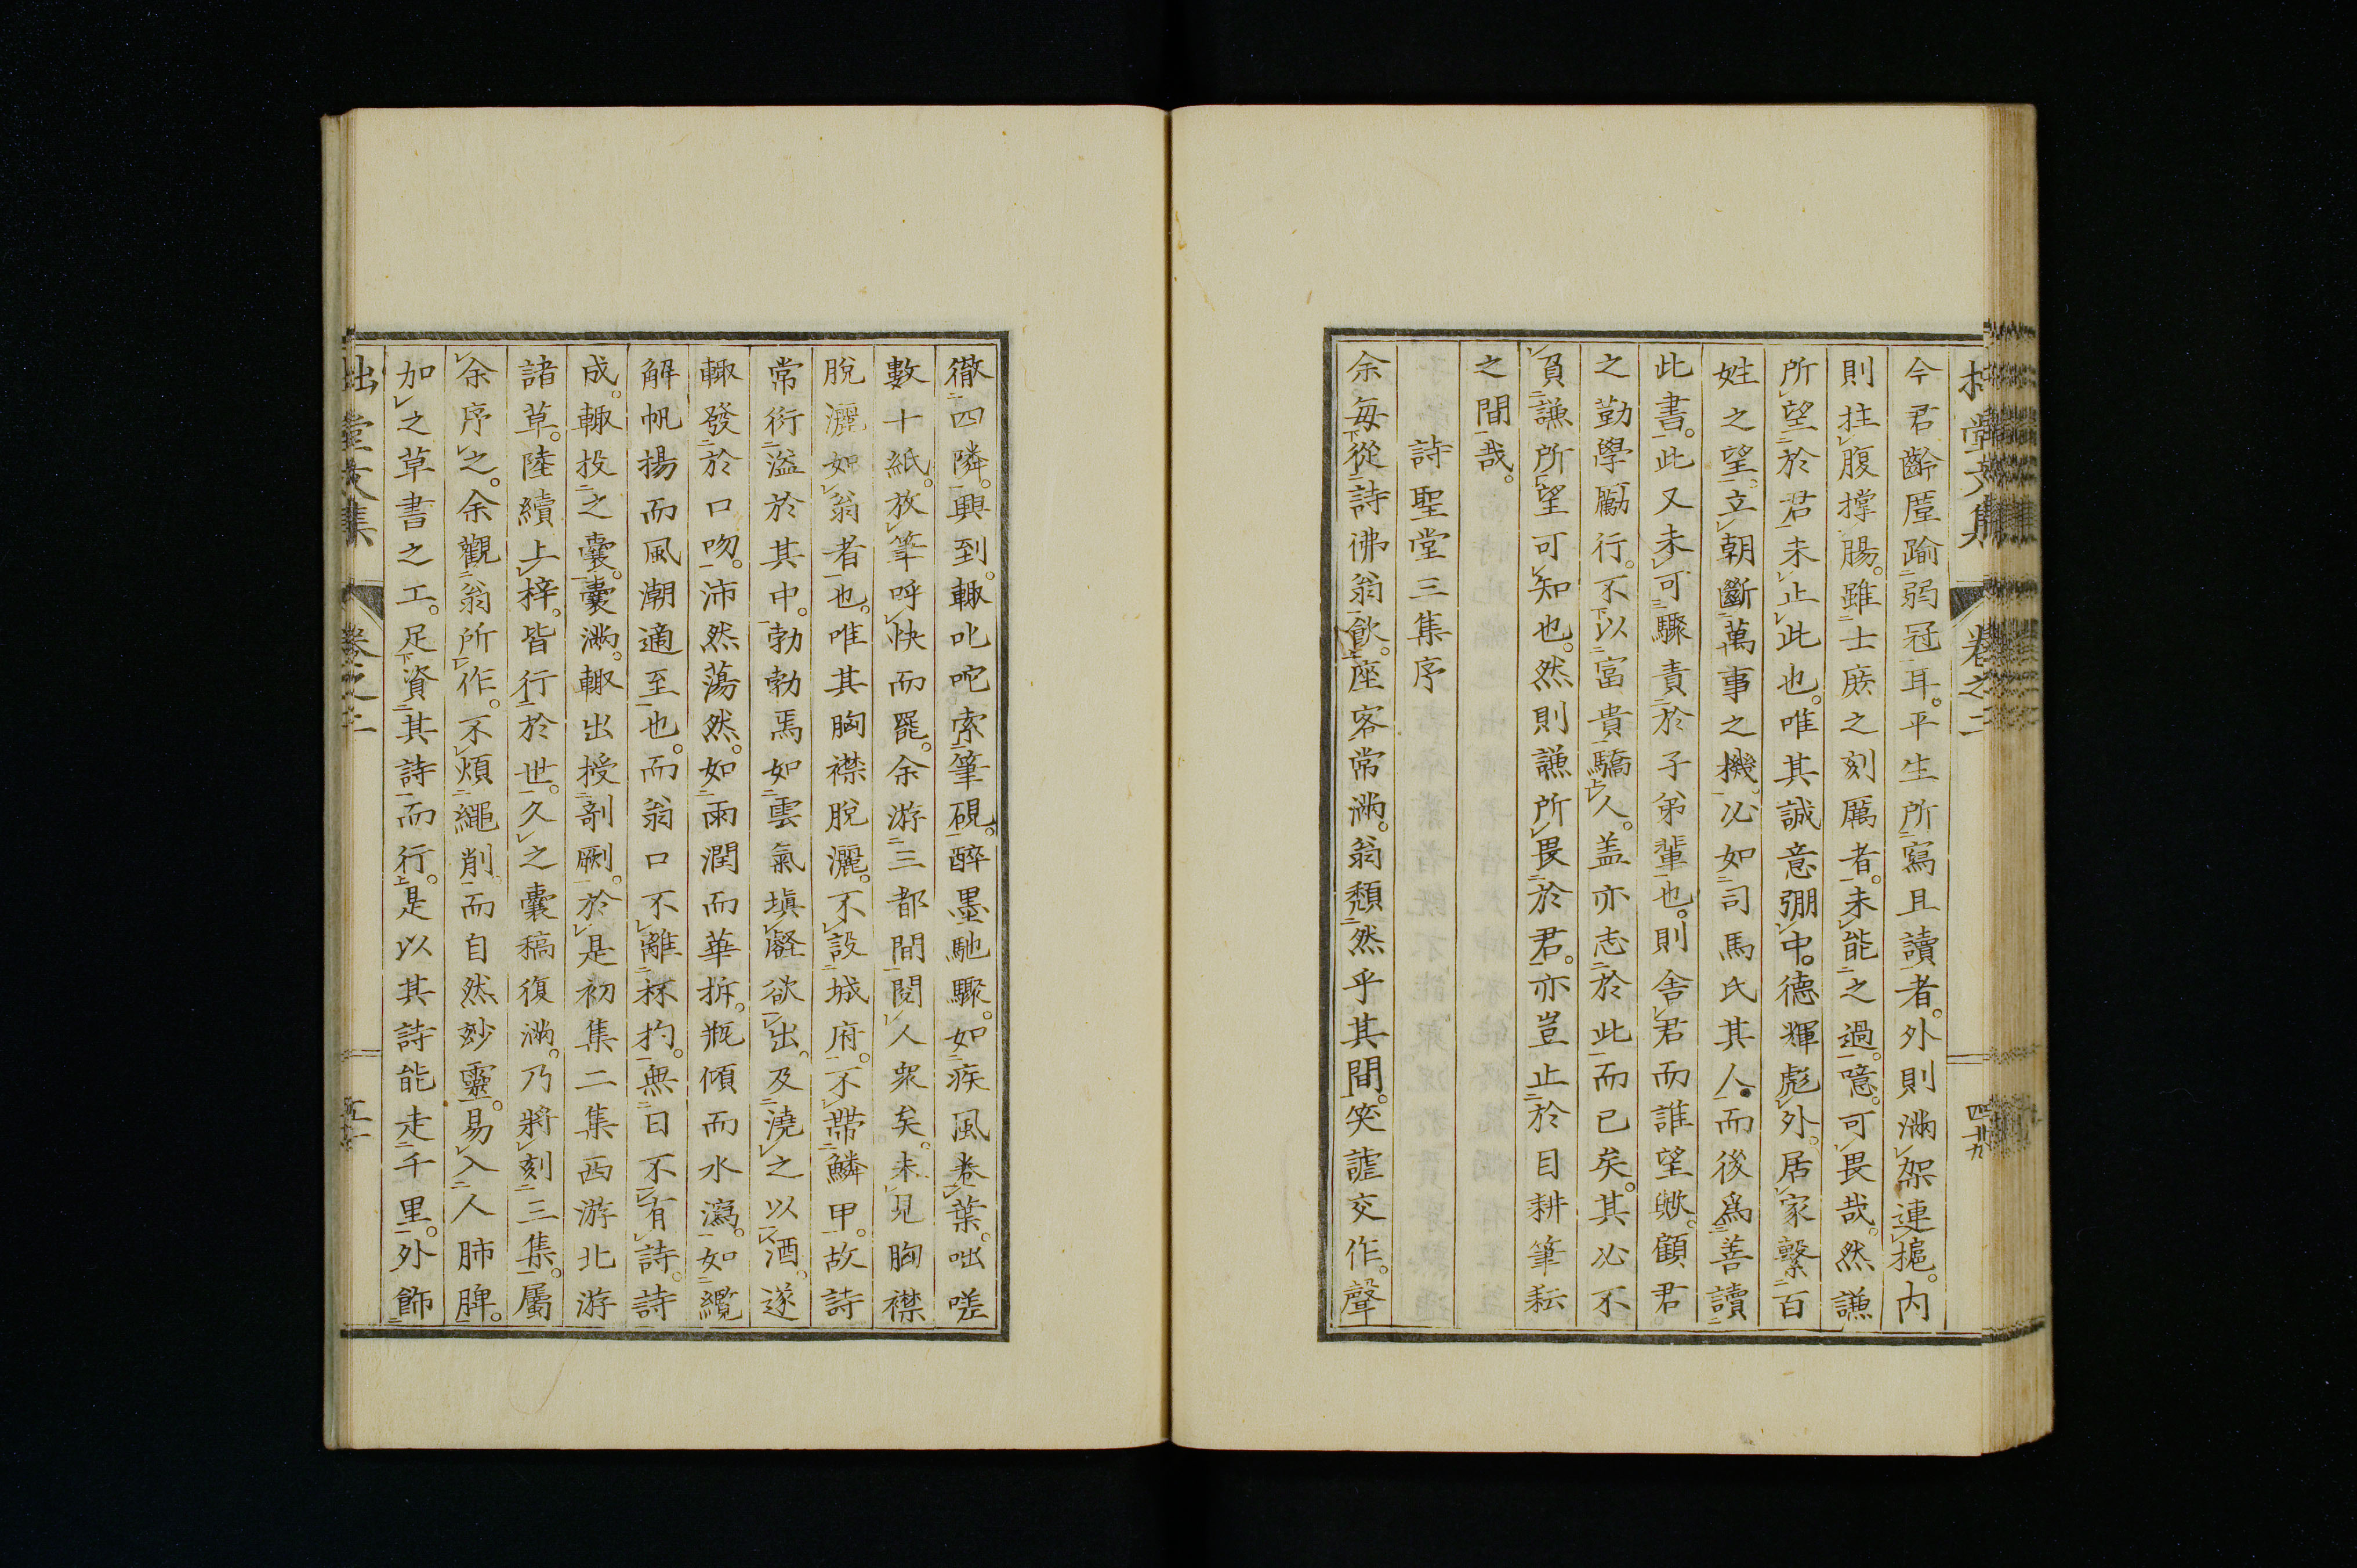 拙堂文集 卷之二 四十九
今君齡厪踰弱冠耳。平生所寫且讀者。外則滿架連㮰。內
則拄腹撑腸。雖士庶之刻厲者。未能之過。噫。可畏哉。然謙
所望於君未止此也。唯其誠意弸中。德輝彪外。居家繫百
姓之望。立朝斷萬事之機。必如司馬氏其人。而後爲善讀
此書。此又未可驟責於子弟輩也。則舍君而誰望歟。顧君
之勤學勵行。不以富貴驕人。盖亦志於此而已矣。其必不
負謙所望可知也。然則謙所畏於君。亦豈止於目耕筆耘
之間哉。
詩聖堂三集序
余每從詩佛翁飮。座客常滿。翁頽然乎其間。笑謔交作。聲
徹四隣。興到。輒叱咜索筆硯。醉墨馳驟。如疾風卷葉。咄嗟
數十紙。放筆呼快而罷。余游三都間。閱人衆矣。未見胸襟
脫灑如翁者也。唯其胸襟脫灑。不設城府。不帶鱗甲。故詩
常衍溢於其中。勃勃焉如雲氣塡壑欲出。及澆之以酒。遂
輒發於口吻。沛然蕩然。如雨潤而華拆。瓶傾而水瀉。如纜
解帆揚而風潮適至也。而翁口不離杯杓。無日不有詩。詩
成。輒投之囊。囊滿。輒出授剞劂。於是初集二集西游北游
諸草。陸續上梓。皆行於世。久之囊稿復滿。乃將刻三集。屬
余序之。余觀翁所作。不煩繩削而自然妙靈。易入人肺脾。
加之草書之工。足資其詩而行。是以其詩能走千里。外飾
拙堂文集 卷之二 五十